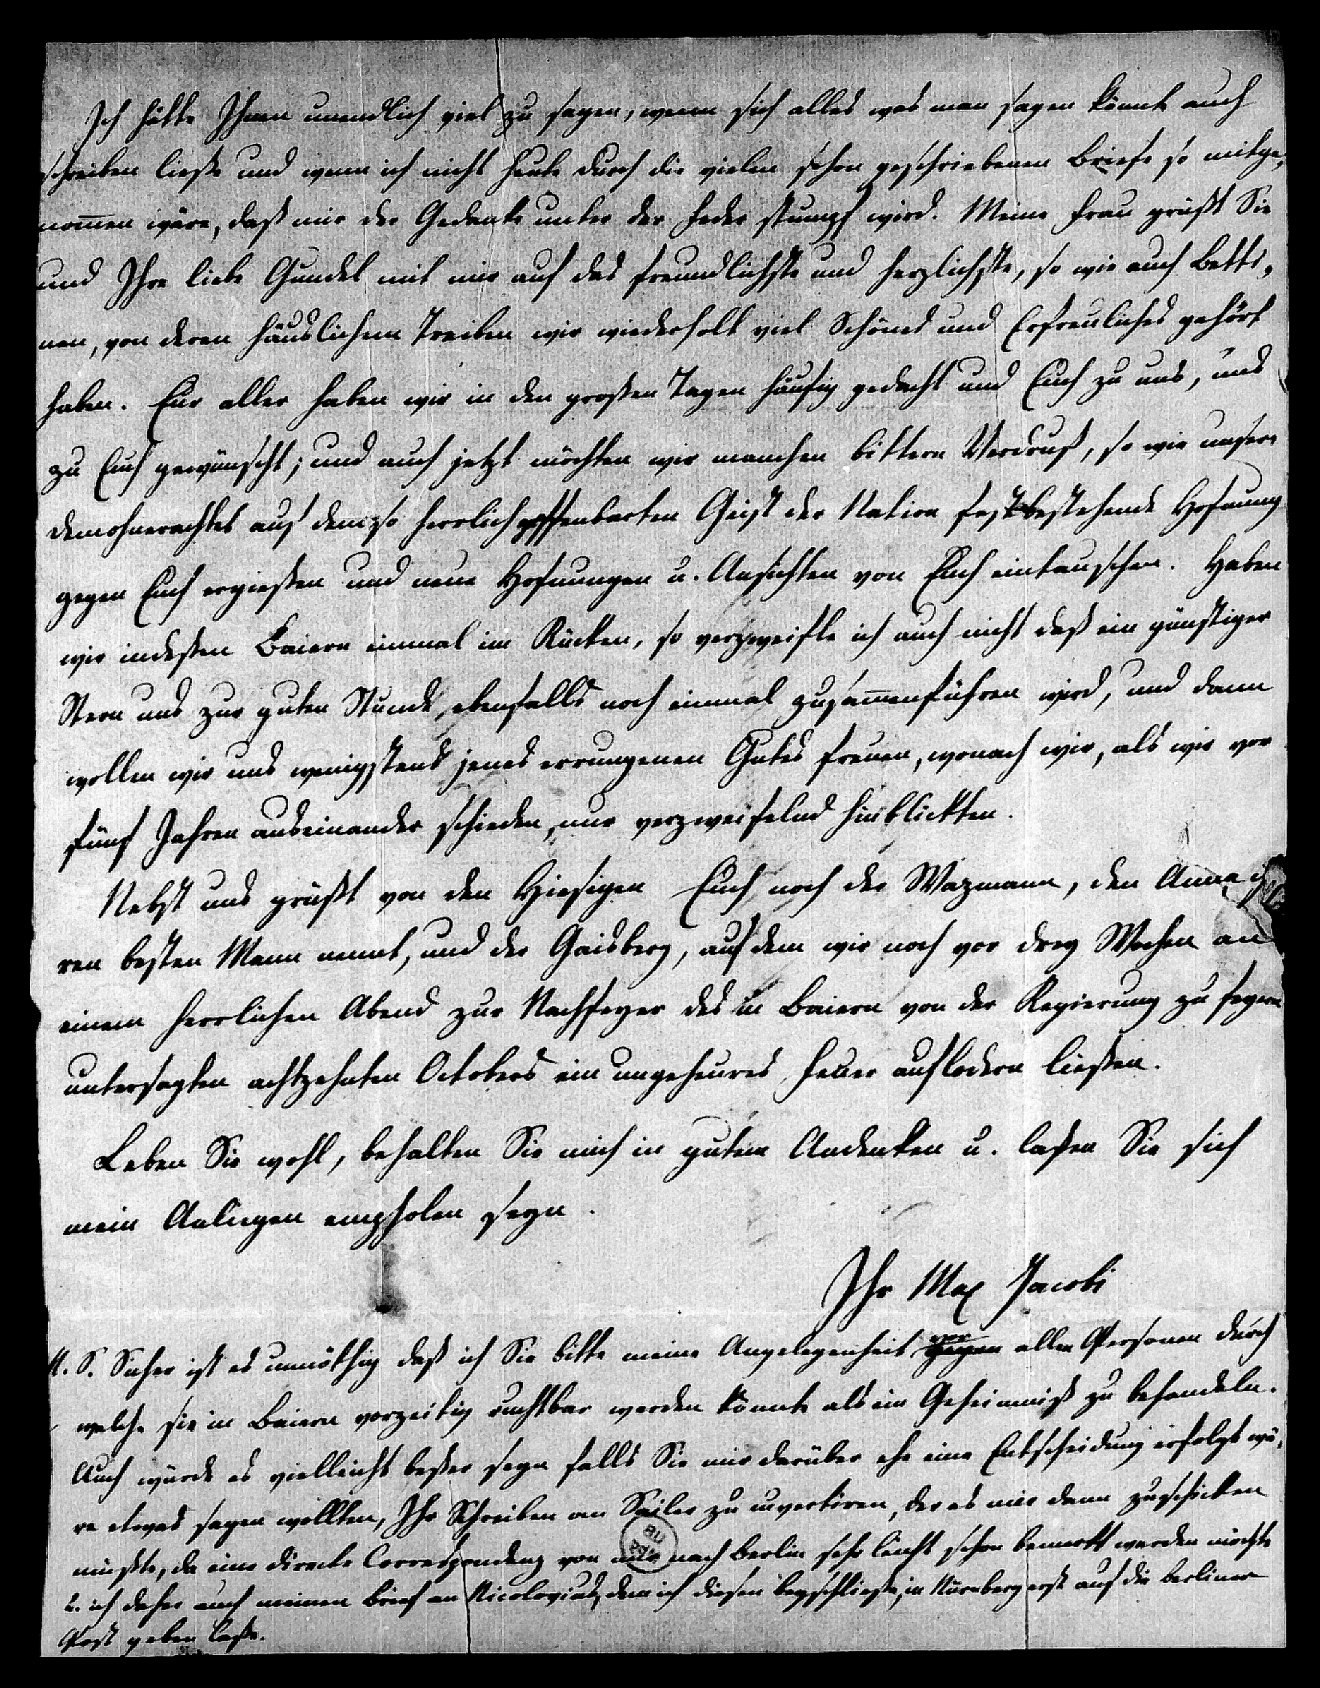 Ich hätte Ihnen unendlich viel zu sagen, wenn sich alles was man sagen könnte auch
schreiben ließe und wenn ich nicht heute durch die vielen schon geschriebenen Briefe so mitge-
nom̅en wäre, daß mir der Gedanke unter der Feder stumpf wird. Meine Frau grüßt Sie
und Ihre liebe Gundel mit mir auf das freundlichste und herzlichste, so wie auch Betti-
nen, von deren häuslichem Treiben wir wiederholt viel Schönes und Erfreuliches gehört
haben. Eur aller haben wir in den großen Tagen häufig gedacht und Euch zu uns, uns
zu Euch gewünscht; und auch jetzt möchten wir manchen bittern Verdruß, so wie unsere
demohnerachtet auf dem so herrlich offenbarten Geist der Nation festbestehende Hofnung
gegen Euch ergießen und neue Hofnungen u. Ansichten von Euch eintauschen. Haben
wir indeßen Baiern einmal im Rücken, so verzweifle ich auch nicht daß ein günstiger
Stern uns zur guten Stunde, ebenfalls noch einmal zusam̅enführen wird, und dann
wollen wir uns wenigstens jenes errungenen Gutes freuen, wonach wir, als wir vor
fünf Jahren auseinander schieden, nur verzweifelnd hinblickten.
Nebst uns grüßt von den Hiesigen Euch noch der Wazmann, den Anna
ren besten Mann nennt, und der Gaisberg, auf dem wir noch vor drey Wochen an
einem herrlichen Abend zur Nachfeyer des in Baiern von der Regierung zu feyern
untersagten achtzehnten Octobers ein ungeheures Feuer auflodern ließen.
Leben Sie wohl, behalten Sie mich in gutem Andenken u. laßen Sie sich
mein Anliegen empfholen seyn.
Ihr Max Jacobi
N. S. Sicher ist es unnöthig daß ich Sie bitte meine Angelegenheit vor allen Personen durch
welche sie in Baiern vorzeitig ruchtbar werden könnte als ein Geheimniß zu behandeln.
Auch würde es vielleicht beßer seyn falls Sie mir darüber ehe eine Entscheidung erfolgt wä-
re etwas sagen wollten, Ihr Schreiben an Sailer zu couvertiren, der es mir dann zuschicken
müßte, da eine directe Correspondenz von mir nach Berlin sehr leicht schon bemerkt werden möchte
u. ich daher auch meinen Brief an Nicolovius, dem ich diesen beyschließe, in Nürnberg erst auf die Berliner
Post geben laße.